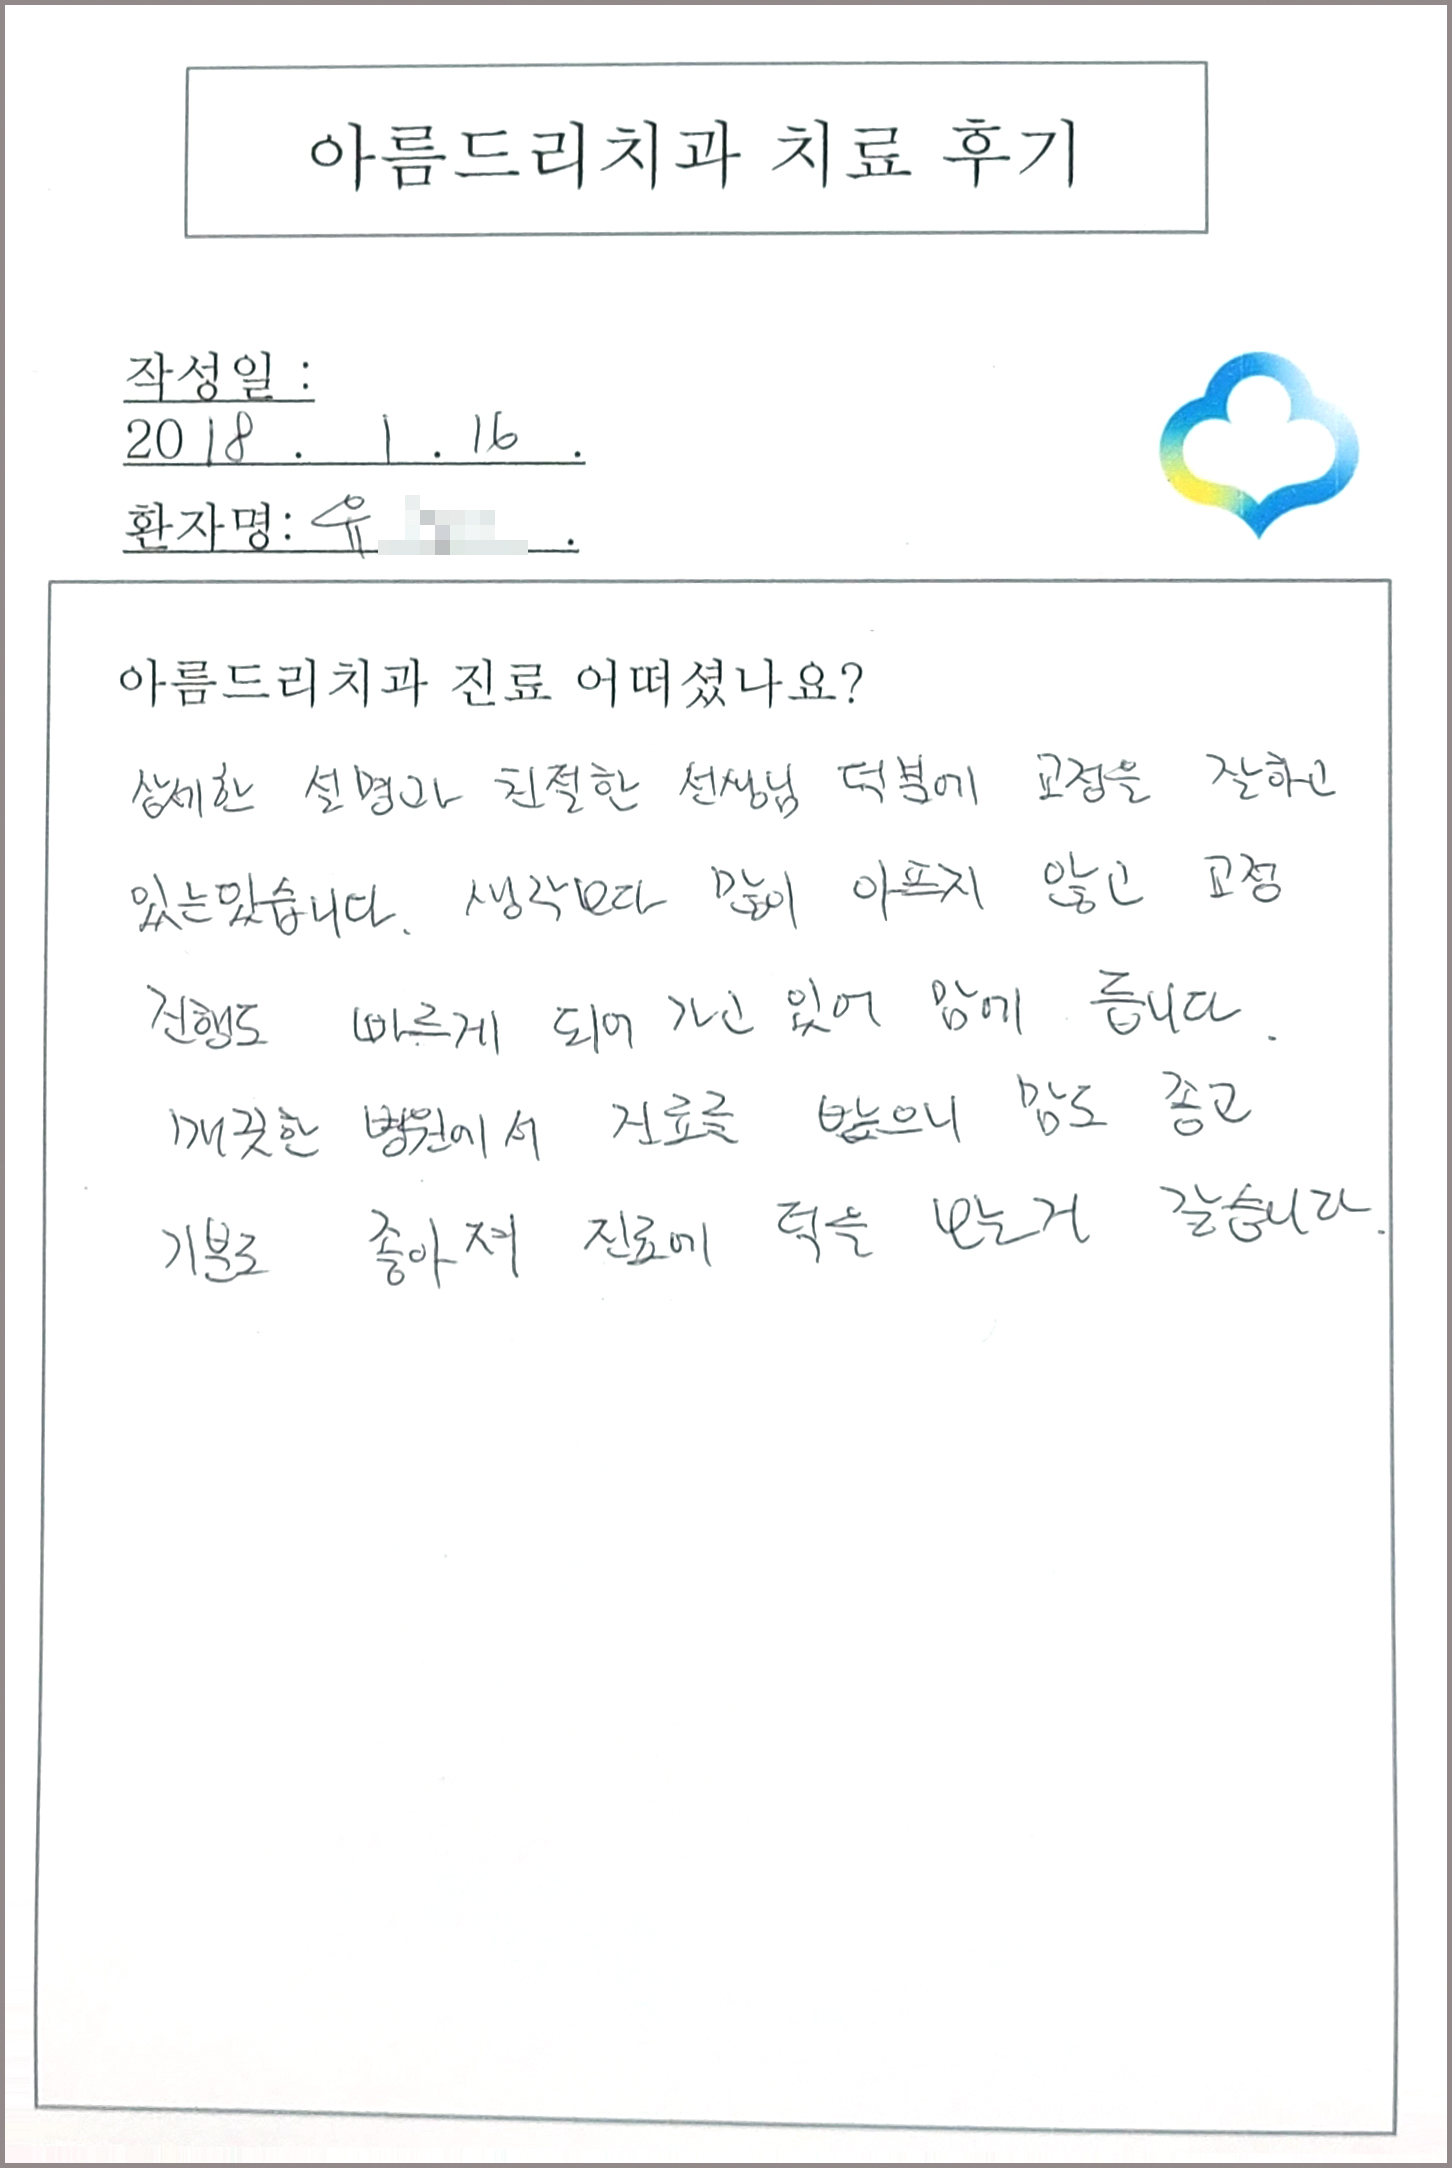 아름드리치과 치료 후기
작성일 :
2018 . 1 . 16 .
환자명: 유 .
아름드리치과 진료 어떠셨나요?
상세한 설명과 친절한 선생님 덕분에 교정을 잘하고
있습니다. 생각보다 많이 아프지 않고 교정
진행도 빠르게 되어 가고 있어 맘에 듭니다.
깨끗한 병원에서 진료를 받으니 맘도 좋고
기분도 좋아져 진료에 덕을 보는거 같습니다.